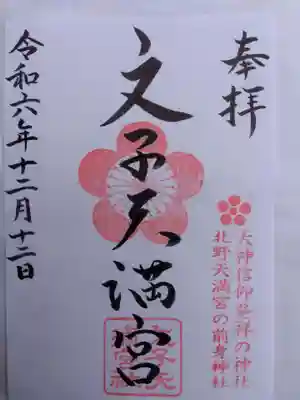 奉拝
天神信仰発祥の神社
北野天満宮の前身神社
文子天満宮
令和六年十二月十二日